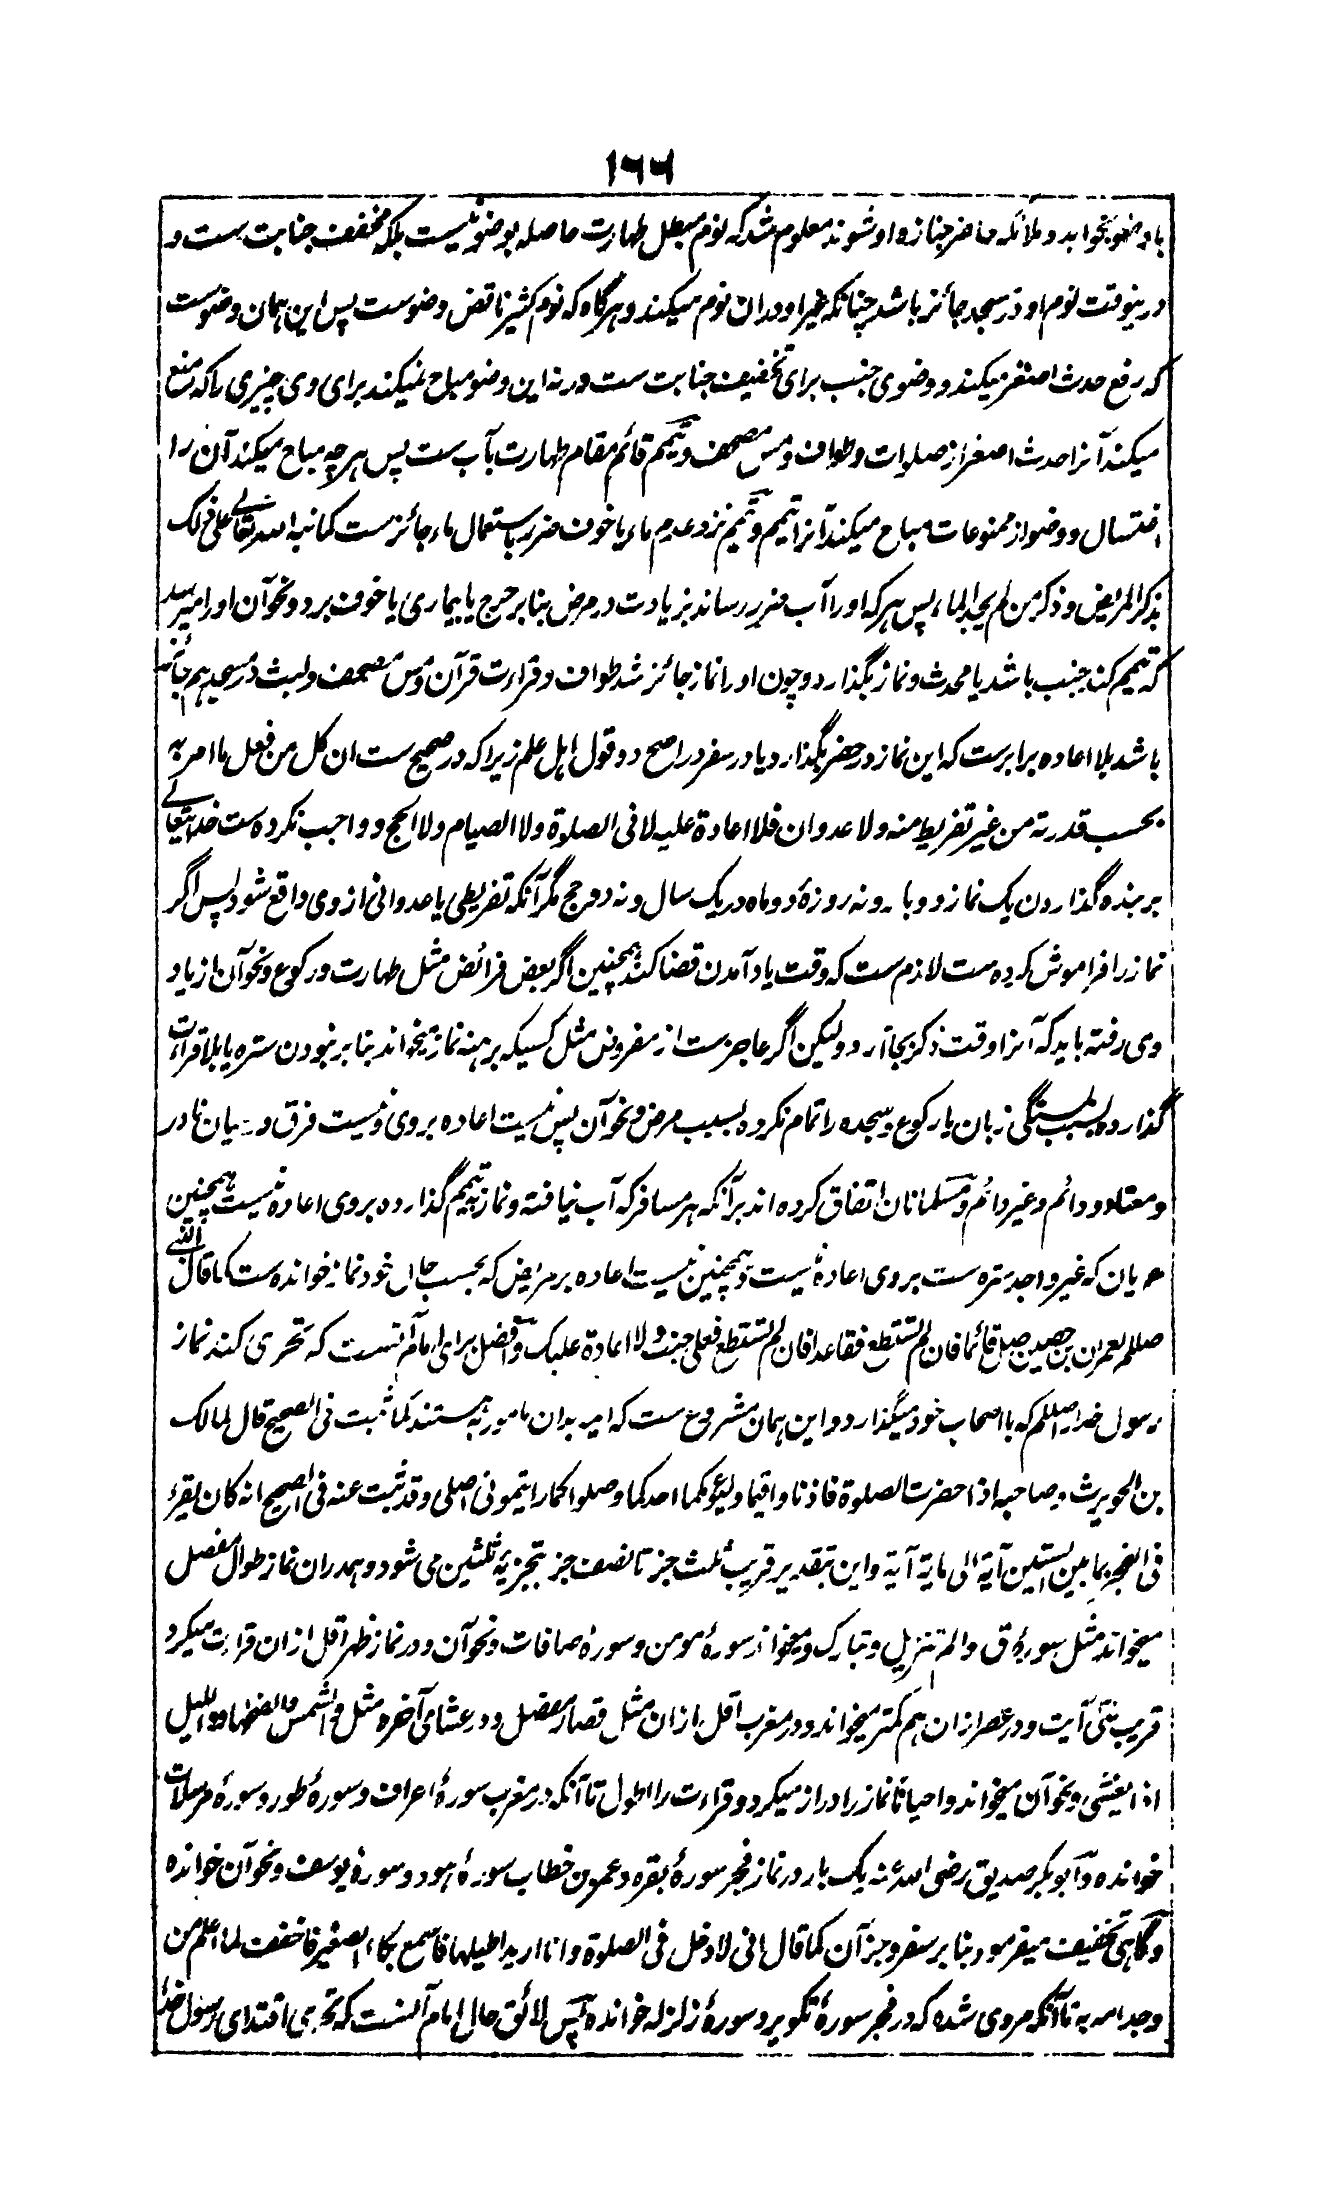 ۱۶۶
باوضو بخوابد و ملائکه حاضر جنازه او شوند معلوم شد که نوم مبطل طهارت حاصله بوضو نیست بلکه مخفف جنابت ست و
درینوقت نوم او در مسجد جائز باشد چنانکه غیر او دران نوم میکنند و هرگاه که نوم کثیر ناقض وضوست پس این همان وضوست
که رفع حدث اصغر میکند و وضوی جنب برای تخفیف جنابت ست ورنه این وضو مباح نمیکند برای وی چیزی را که منع
میکند آنرا حدث اصغر از صلوات و طواف و مس مصحف و تیمم قائم مقام طهارت بآب ست پس هرچه مباح میکند آن را
اغتسال و وضو از ممنوعات مباح میکند آنرا تیمم و تیمم نزد عدم ماء یا خوف ضرر باستعمال ماء جائز ست کما نبه الله تعالی علی ذلک
بذکر المریض و ذکر من لم یجد الماء پس هرکه او را آب ضرر رساند بزیادت در مرض بنا بر جرح یا بیماری یا خوف برد و نحو آن او را میرسد
که تیمم کند جنب باشد یا محدث و نماز بگذارد و چون او را نماز جائز شد طواف و قراءت قرآن و مس مصحف و لبث در مسجد هم جائز
باشد بلا اعاده برابرست که این نماز در حضر بگذارد یا در سفر در اصح دو قول اهل علم زیرا که در صحیح ست ان کل من فعل ما امر به
بحسب قدرته من غیر تفریط منه ولا عدوان فلا اعادة علیه لا فی الصلوة ولا الصیام ولا الحج و واجب نکرده ست خدایتعالی
بر بنده گذاردن یک نماز دو بار و نه روزهٔ دو ماه در یک سال و نه دو حج مگر آنکه تفریطی یا عدوانی از وی واقع شود پس اگر
نماز را فراموش کرده ست لازم ست که وقت یاد آمدن قضا کند همچنین اگر بعض فرائض مثل طهارت و رکوع و نحو آن از یاد
وی رفته باید که آنرا وقت ذکر بجا آرد و لیکن اگر عاجز ست از مفروض مثل کسیکه برهنه نماز میخواند بنا بر نبودن ستره یا بلا قراءت
گذارده بسبب بستگی زبان یا رکوع و سجده را تمام نکرده بسبب مرض و نحو آن پس نیست اعاده بروی و نیست فرق درمیان نادر
و معتاد و دائم و غیر دائم و مسلمانان اتفاق کرده اند برآنکه هر مسافر که آب نیافته و نماز به تیمم گذارده بروی اعاده نیست همچنین
عریان که غیر واجد ستره ست بروی اعاده نیست و همچنین نیست اعاده بر مریض که بحسب حال خود نماز خوانده ست کما قال النبی
صللم لعمران بن حصین صل قائما فان لم تستطع فقاعدا فان لم تستطع فعلی جنب ولا اعادة علیک و افضل برای امام آنست که تحری کند نماز
رسول خدا صللم که با اصحاب خود میگذارد و این همان مشروع ست که ایمه بدان مامور به هستند کما ثبت فی الصحیح قال لمالک
بن الحویرث و صاحبه اذا حضرت الصلوة فاذنا و اقیما و لیؤمکما احدکما و صلوا کما رایتمونی اصلی و قد ثبت عنه فی الصحیح انه کان یقرء
فی الفجر بما بین الستین آیة الی مایة آیة و این بتقدیر قریب ثلث جز تا نصف جز بتجزیهٔ ثلثین می شود و همدران نماز طوال مفصل
میخواند مثل سورهٔ ق و الم تنزیل و تبارک و میخواند سورهٔ مومن و سورهٔ صافات و نحو آن و در نماز ظهر اقل ازان قراءت میکرد
قریب بسی آیت و در عصر ازان هم کمتر میخواند و در مغرب اقل ازان مثل قصار مفصل و در عشای آخره مثل و الشمس و ضحها و اللیل
اذا یغشی و نحو آن میخواند و احیانا نماز را دراز میکرد و قراءت را اطول تا آنکه در مغرب سورهٔ اعراف و سورهٔ طور و سورهٔ مرسلات
خوانده و ابوبکر صدیق رضی الله عنه یک بار در نماز فجر سورهٔ بقره و عمر بن خطاب سورهٔ هود و سورهٔ یوسف و نحو آن خوانده
و گاهی تخفیف میفرمود بنا بر سفر و جز آن کما قال انی لادخل فی الصلوة و انا ارید اطیلها فاسمع بکاء الصغیر فاخفف لما اعلم من
وجد امه به تا آنکه مروی شده که در فجر سورهٔ تکویر و سورهٔ زلزله خوانده پس لائق حال امام آنست که تحری اقتدای رسول خدا